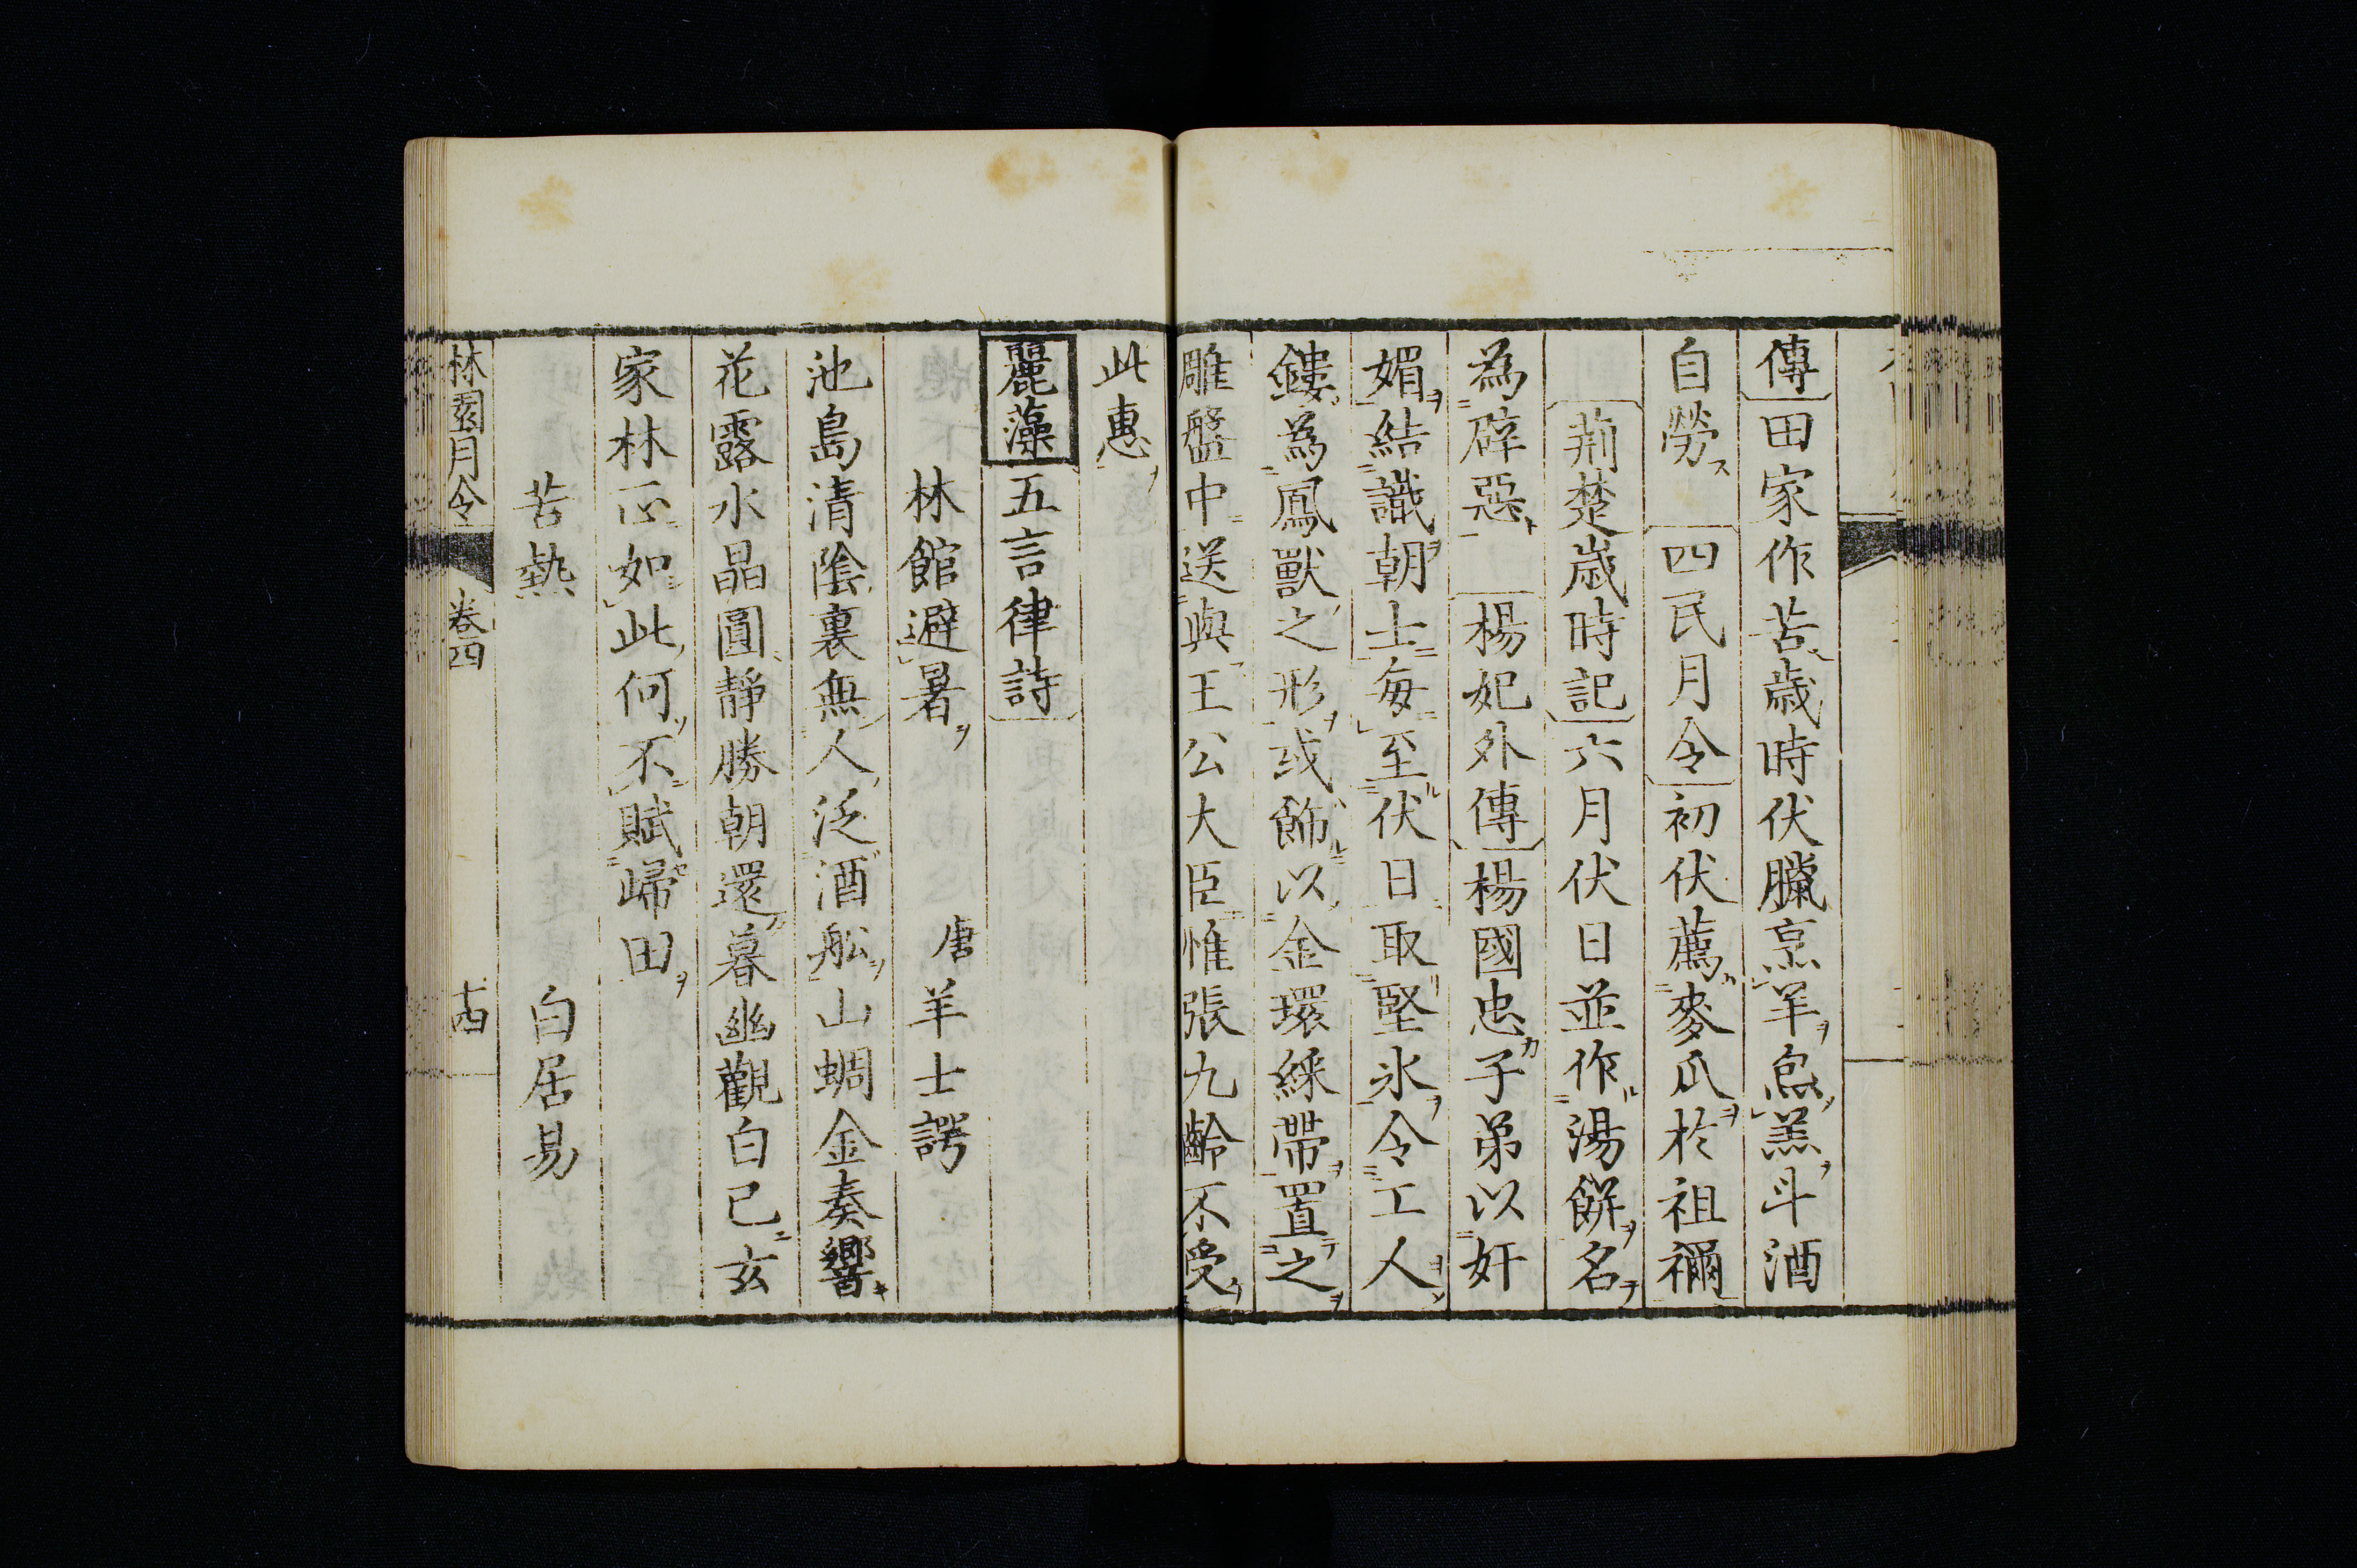 傳田家作苦歳時伏臘烹羊炰羔斗酒
自勞 四民月令初伏薦麥瓜於祖禰
荊楚歳時記六月伏日並作湯餅名
為辟惡 楊妃外傳楊國忠子弟以奸
媚結識朝士每至伏日取堅氷令工人
鏤為鳳獸之形或飾以金環綵帶置之
雕盤中送與王公大臣惟張九齡不受
此惠
麗藻五言律詩
林館避暑 唐羊士諤
池島清陰裏無人泛酒舩山蜩金奏響
花露水晶圓靜勝朝還暮幽觀白已玄
家林正如此何不賦歸田
苦熱 白居易
林園月令 卷四 十四